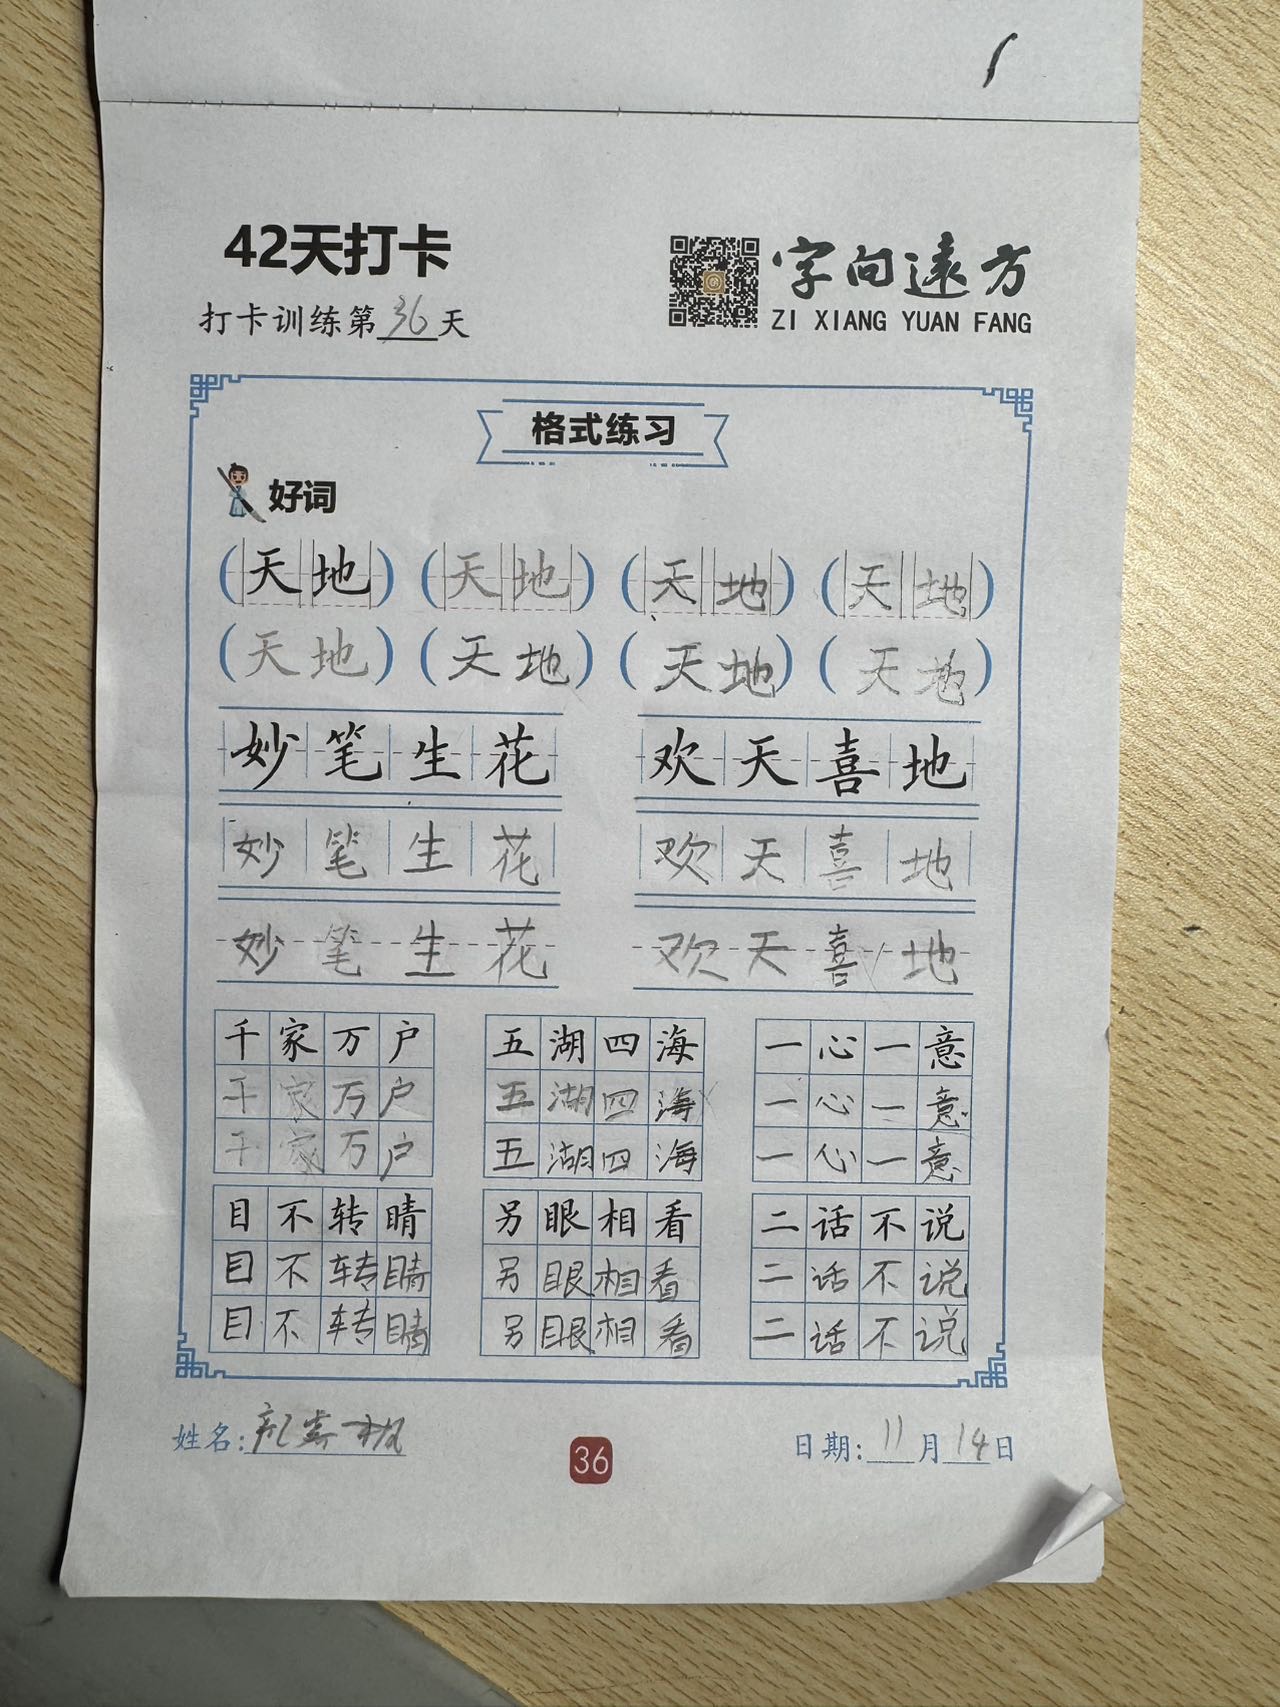 42天打卡
字向遠方
ZI XIANG YUAN FANG
打卡训练第36天
格式练习
好词
(天地) (天地) (天地) (天地)
(天地) (天地) (天地) (天地)
妙笔生花 欢天喜地
妙笔生花 欢天喜地
妙笔生花 欢天喜地
千家万户 五湖四海 一心一意
千家万户 五湖四海 一心一意
千家万户 五湖四海 一心一意
目不转睛 另眼相看 二话不说
目不转睛 另眼相看 二话不说
目不转睛 另眼相看 二话不说
姓名:
36
日期:11月14日